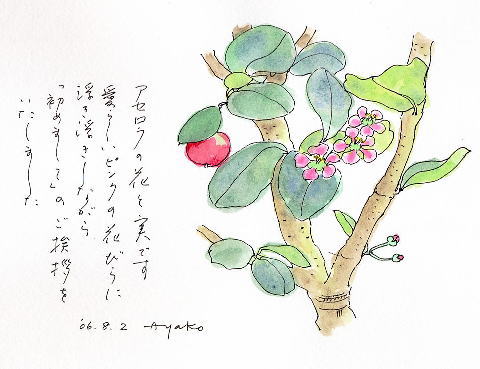 アセロラの花と実です
愛らしいピンクの花びらに
浮き浮きしながら
「初めまして」のご挨拶を
いたしました
'06.8.2 Ayako